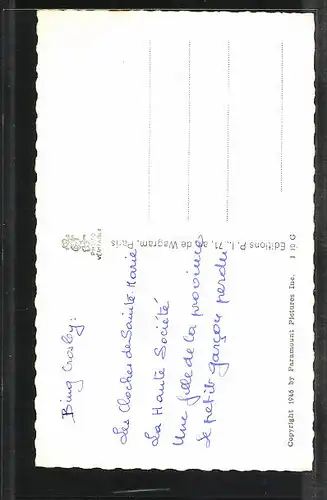 Bing Crosby:
Les Cloches de Sainte-Marie
La Haute Société
Une fille de la province
Le petit garçon perdu
PHOTO VÉRITABLE
Éditions P. I., 71, de Wagram, Paris
Copyright 1946 by Paramount Pictures Inc.
G